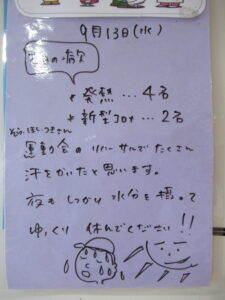 9月13日(水)
今日の病欠
* 発熱…4名
* 新型コロナ…2名
運動会のリハーサルでたくさん
汗をかいたと思います。
夜もしっかり水分を摂って
ゆっくり休んでください!!